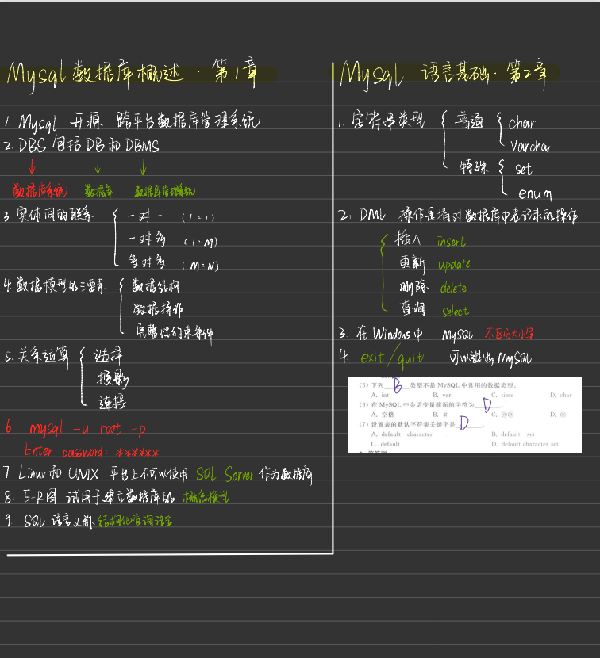 Mysql 数据库概述·第1章
1 Mysql 开源 跨平台数据库管理系统
2. DBS 包括 DB 和 DBMS
数据库系统 数据库 数据库管理系统
3 实体间的联系
一对一 (1:1)
一对多 (1:M)
多对多 (M:N)
4 数据模型的三要素
数据结构
数据操作
完整性约束条件
5. 关系运算
选择
投影
连接
6 mysql -u root -p
Enter password: ******
7 Linux 和 UNIX 平台上不可以使用 SQL Server 作为数据库
8 E-R图 适用于建立数据库的 概念模型
9 SQL 语言又称 结构化查询语言
Mysql 语言基础·第2章
1. 字符串类型
普通
char
Varchar
特殊
set
enum
2. DML 操作是指对数据库中表记录的操作
插入 insert
更新 update
删除 delete
查询 select
3. 在 Windows中 MySQL 不区分大小写
4 exit/quit 可以退出MySQL
(5) 下列 B 类型不是 MySQL 中常用的数据类型。
A. int B. var C. time D. char
(6) 在 MySQL 中会话变量前面的字符为 D
A. 空格 B. # C. @@ D. @
D
A. default character B. default set
C. default D. default character set